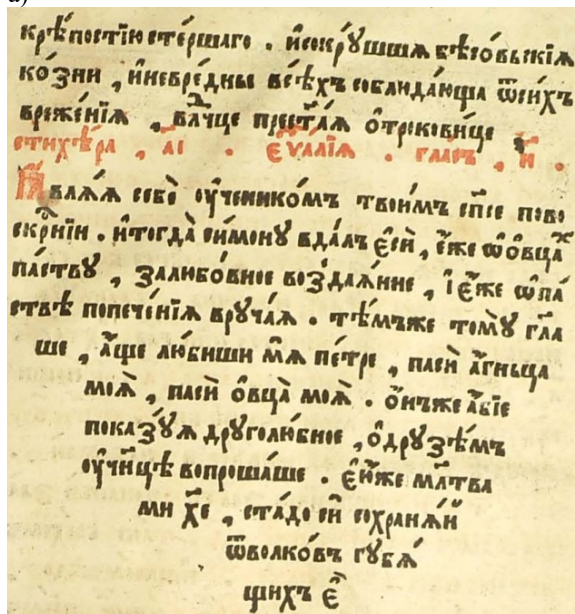 а)
крѣ́постїю сте́ршаго . и҆сокрꙋ́шшꙗ бѣсо́вьскїѧ
ко́зни , и҆невре́дны всѣ́хъ соблюда́ющаѧ ѿси́хъ
вреже́нїѧ , влⷣчце прест҃а́ѧ ѻ҆трокови́це
стихѣ́ра , а҃і . є҆ѵⷢ҇лїа . гла́съ , и҃ .
Ꙗ҆влѧ́ѧ себѐ оу҆ченико́мъ твои́мъ сп҃се пово
скрⷭ҇нїи . и҆тогда̀ си́мону вда́лъ є҆сѝ , є҆́же ѡ҆ѻ҆вца́хъ
па́ству , залюбо́вное воздаѧ́нїе , і҆ є҆́же ѡ҆па
ствѣ̀ попече́нїѧ врꙋча́ѧ . тѣ́мъже томꙋ̀ гл҃а
ше , а҆́ще лю́биши мѧ̀ пе́тре , пасѝ а҆́гньца
моѧ̀ , пасѝ ѻ҆́вца моѧ̀ . ѻ҆́нъже а҆́бїе
показꙋ́ѧ дрꙋголю́бное , ѻ҆дрꙋзѣ́мъ
оу҆чн҃цѣ̀ вопроша́ше . є҆ѝхже мл҃тва
ми хрⷭ҇те , ста́до сѝ сохранѧ́й
ѿволко́въ гꙋбѧ́
щихъ є҆̀